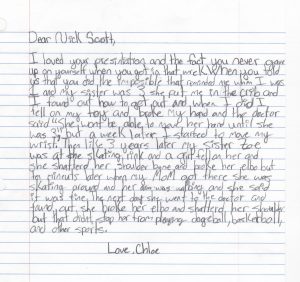 Dear Nick Scott,
I loved your presentation and the fact you never gave
up on yourself when you got in that wreck. When you told
us that you did the impossible that reminded me when I was
1 and my sister was 3 she put me in the crib and
I found out how to get out and when I did I
fell on my toys and broke my hand and the doctor
said "She won't be able to move her hand until she
was 3", but a week later I started to move my
wrist. Then like 3 years later my sister Zoe
was at the skating rink and a girl fell on her and
she shatterd her shoulder bone and broke her elbo but
10 minuets later when my MOM got there she was
skating around and her arm was and she said
it was fine, the next day she went to the doctor and
found out she broke her elbo and shatterd her shoulder
but that didn't stop her from playing dogeball, basketball,
and other sports.
Love, Chloe